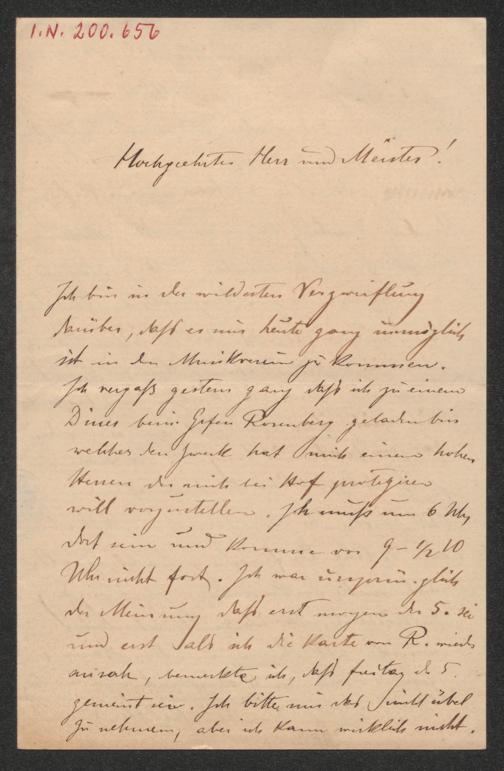 I.N. 200.656
Hochgeehrter Herr und Meister!
Ich bin in der wildesten Verzweiflung
darüber, daß es mir heute ganz unmöglich
ist in den Musikverein zu kommen.
Ich vergaß gestern ganz daß ich zu einem
Diner beim Grafen Rosenberg geladen bin
welches den Zweck hat mich einem hohen
Herren der mich bei Hof protegiren
will vorzustellen. Ich muß um 6 Uhr
dort sein und komme vor 9 - 1/2 10
Uhr nicht fort. Ich war
der Meinung daß erst morgen der 5. sei
und erst als ich die Karte von R. wieder
ansah, bemerkte ich, daß freitag d. 5.
gemeint sei. Ich bitte mir das nicht übel
zu nehmen, aber ich kann wirklich nicht.